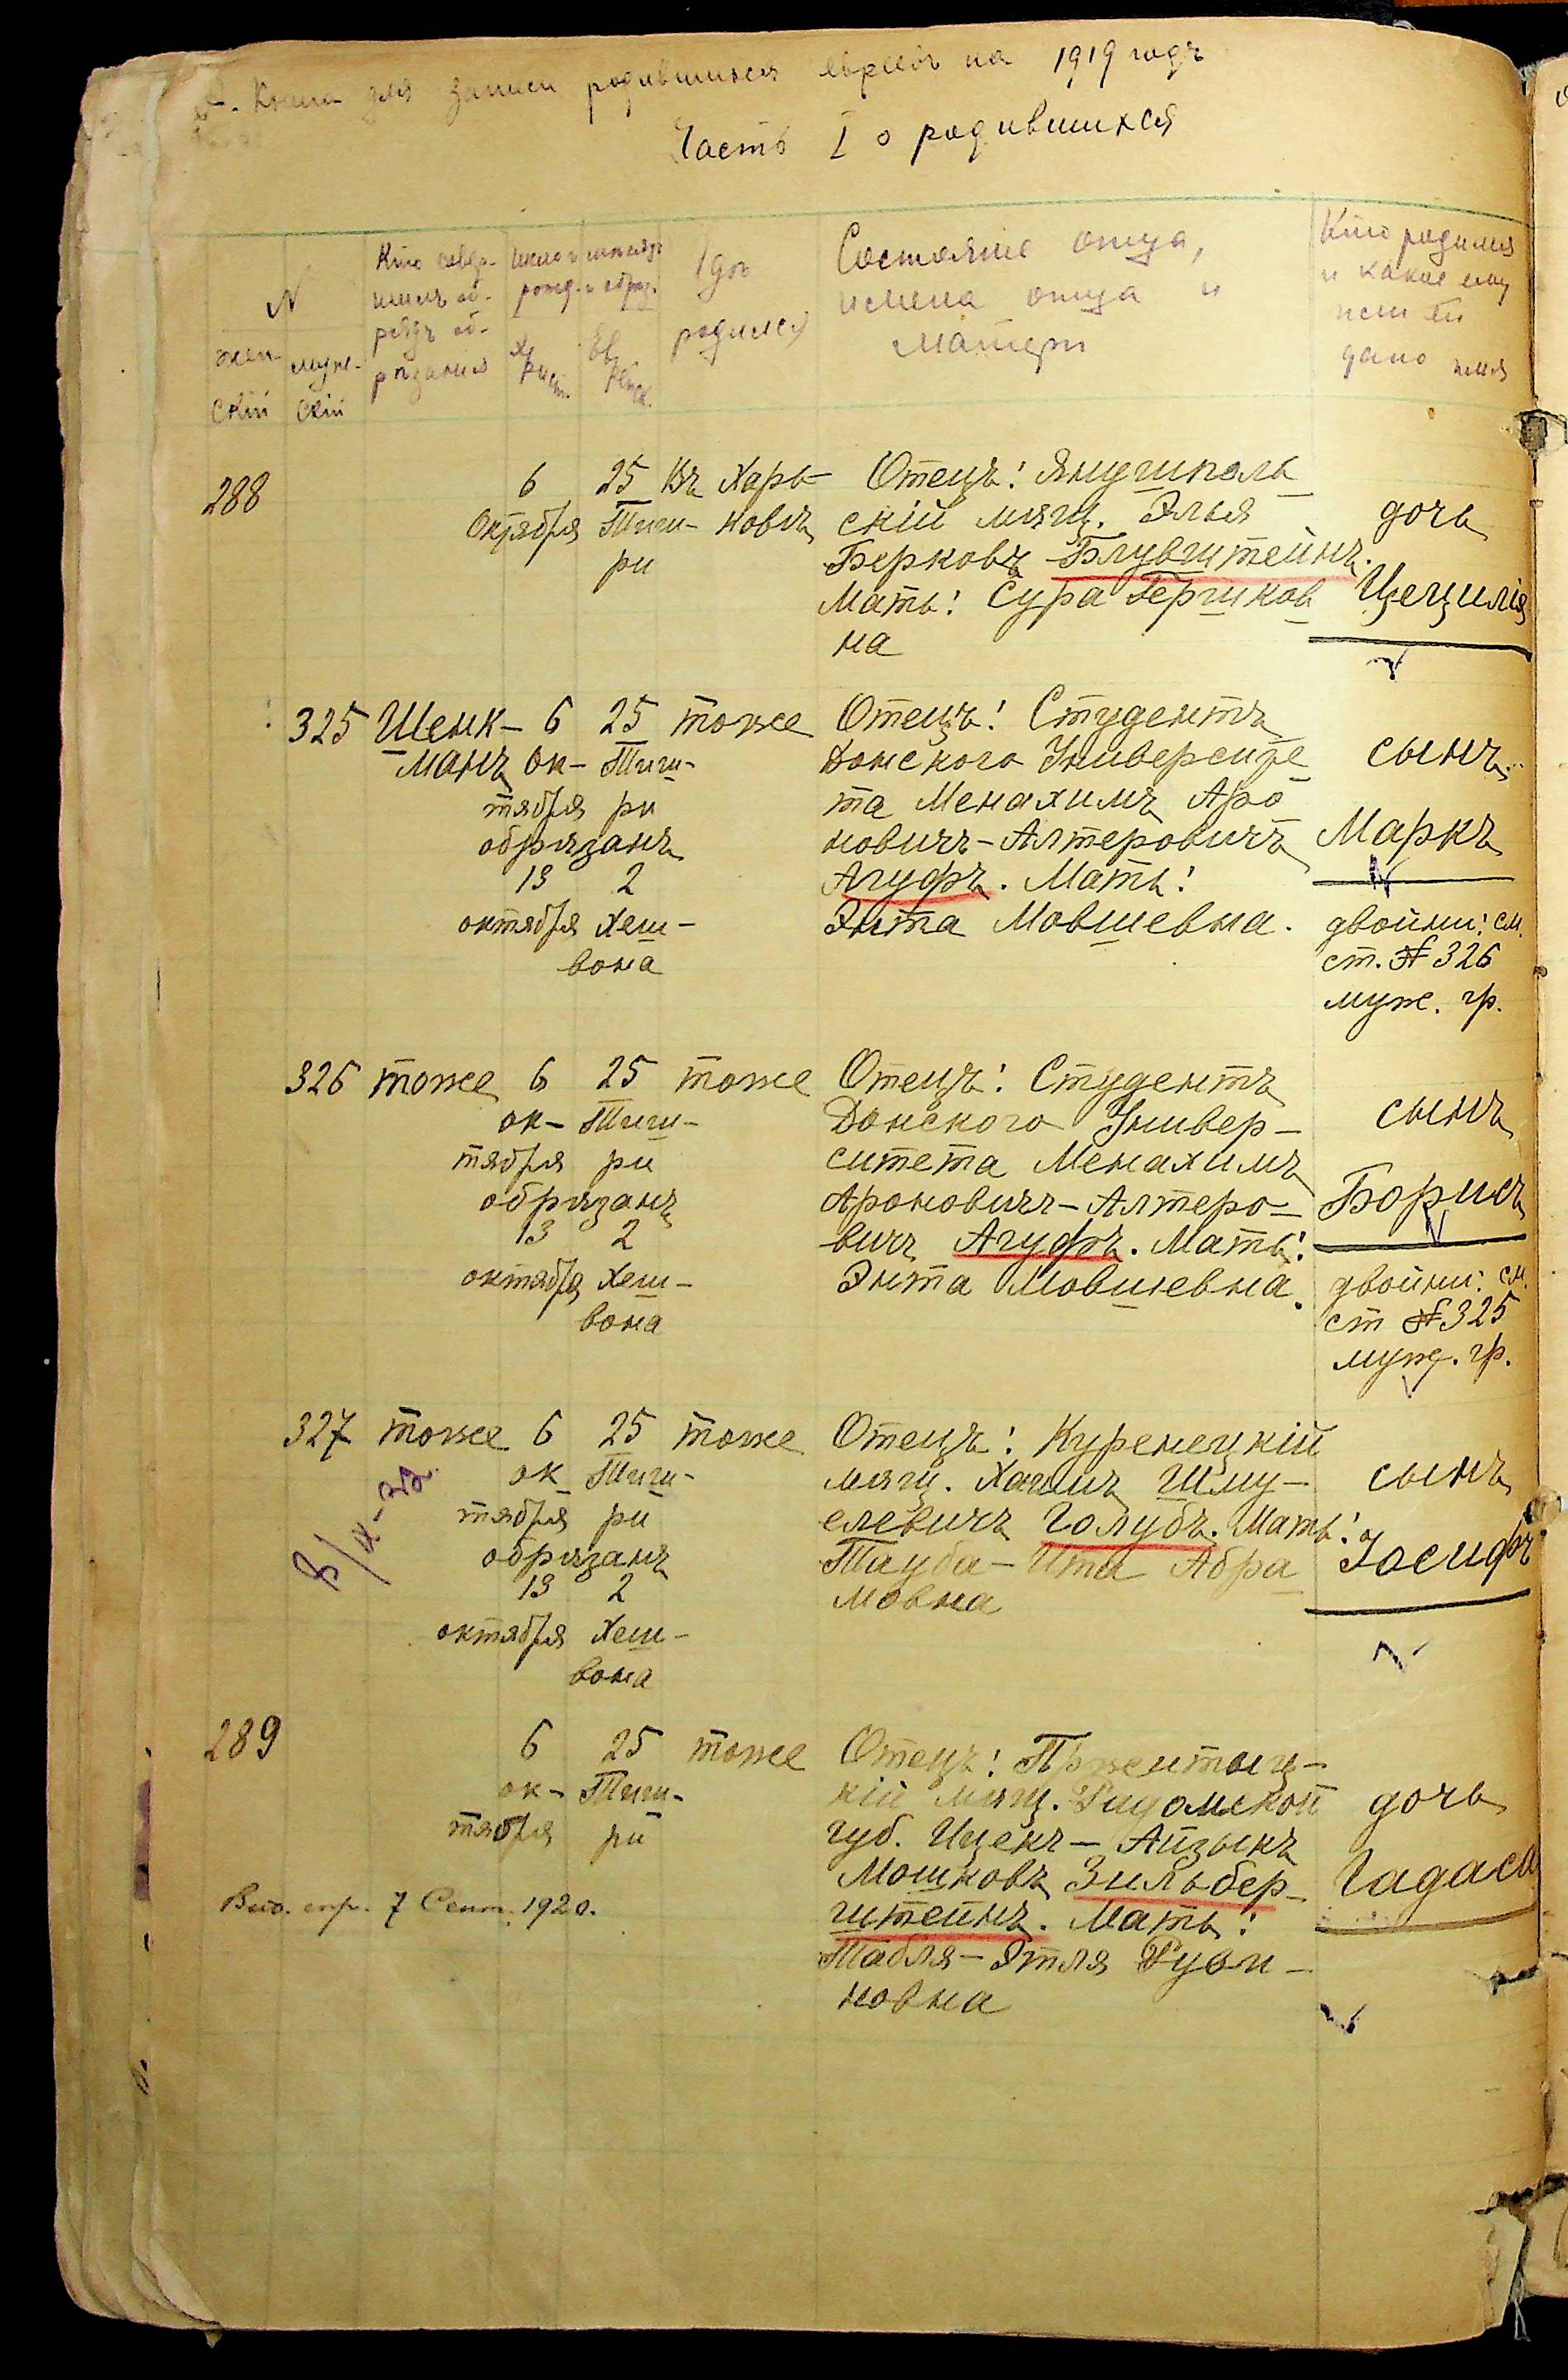 Книга для записи родившихся евреевъ на 1919 годъ
Часть I о родившихся
№
жен-
скій
муже-
скій
Кто совер-
шилъ об-
рядъ об-
рѣзанія
Число и мѣсяцъ
рожд. и обрѣз.
Христ.
Еврейск.
Гдѣ
родился
Состояніе отца,
имена отца и
матери
Кто родился
и какое ему
или ей
дано имя
288
6
Октября
25
Тиш-
ри
Въ Харь-
ковѣ
Отецъ: Янушполь
скій мѣщ. Элья
Берковъ Блувштейнъ.
Мать: Сура Гершков
на
дочь
Цецилія
325
Шенк-
манъ
6
ок-
тября
25
Тиш-
ри
обрѣзанъ
13 2
октября Хеш-
вона
тоже
Отецъ: Студентъ
Донского Университе
та Менахимъ Аро
новичъ-Алтеровичъ
Агуфъ. Мать:
Энта Мовшевна.
сынъ
Маркъ
двойни: см.
ст. № 326
муж. гр.
326
тоже
6
ок-
тября
25
Тиш-
ри
обрѣзанъ
13 2
октября Хеш-
вона
тоже
Отецъ: Студентъ
Донского Универ-
ситета Менахимъ
Ароновичъ-Алтеро-
вичъ Агуфъ. Мать:
Энта Мовшевна.
сынъ
Борисъ
двойни: см.
ст № 325
муж. гр.
327
тоже
6
ок-
тября
25
Тиш-
ри
обрѣзанъ
13 2
октября Хеш-
вона
тоже
Отецъ: Куренецкій
мѣщ. Хаимъ Шму-
елевичъ Голубъ. Мать:
Тауба-Ита Абра
мовна
сынъ
Іосифъ
289
6
ок-
тября
25
Тиш-
ри
тоже
Отецъ: Пржитыц-
кій мѣщ. Радомской
губ. Ицекъ-Айзыкъ
Мошковъ Зильбер-
штейнъ. Мать:
Табля-Этля Руви-
новна
дочь
Гадаса
7 Сент. 1920.